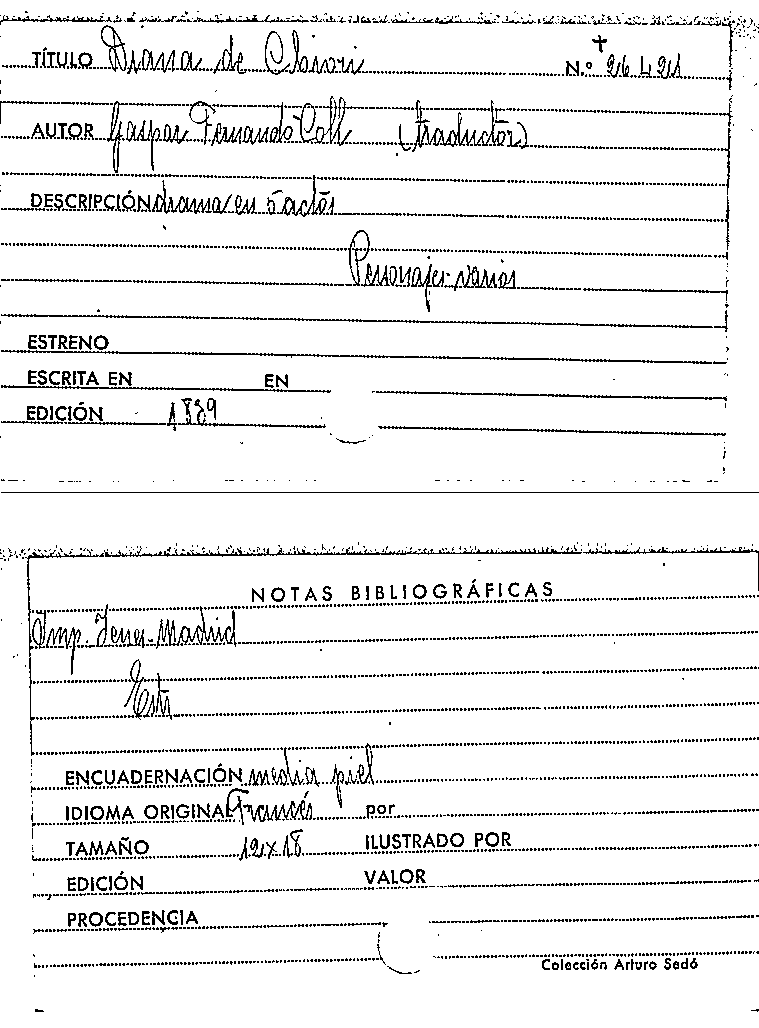 TÍTULO Diana de Chivri N.º 26421
AUTOR Gaspar Fernando Coll (traductor)
DESCRIPCIÓN drama en 5 actos
Personajes varios
ESTRENO
ESCRITA EN EN
EDICIÓN 1839
NOTAS BIBLIOGRÁFICAS
Imp. Yenes - Madrid
ENCUADERNACIÓN media piel
IDIOMA ORIGINAL Francés por
TAMAÑO 12 x 18 ILUSTRADO POR
EDICIÓN VALOR
PROCEDENCIA
Colección Arturo Sedó